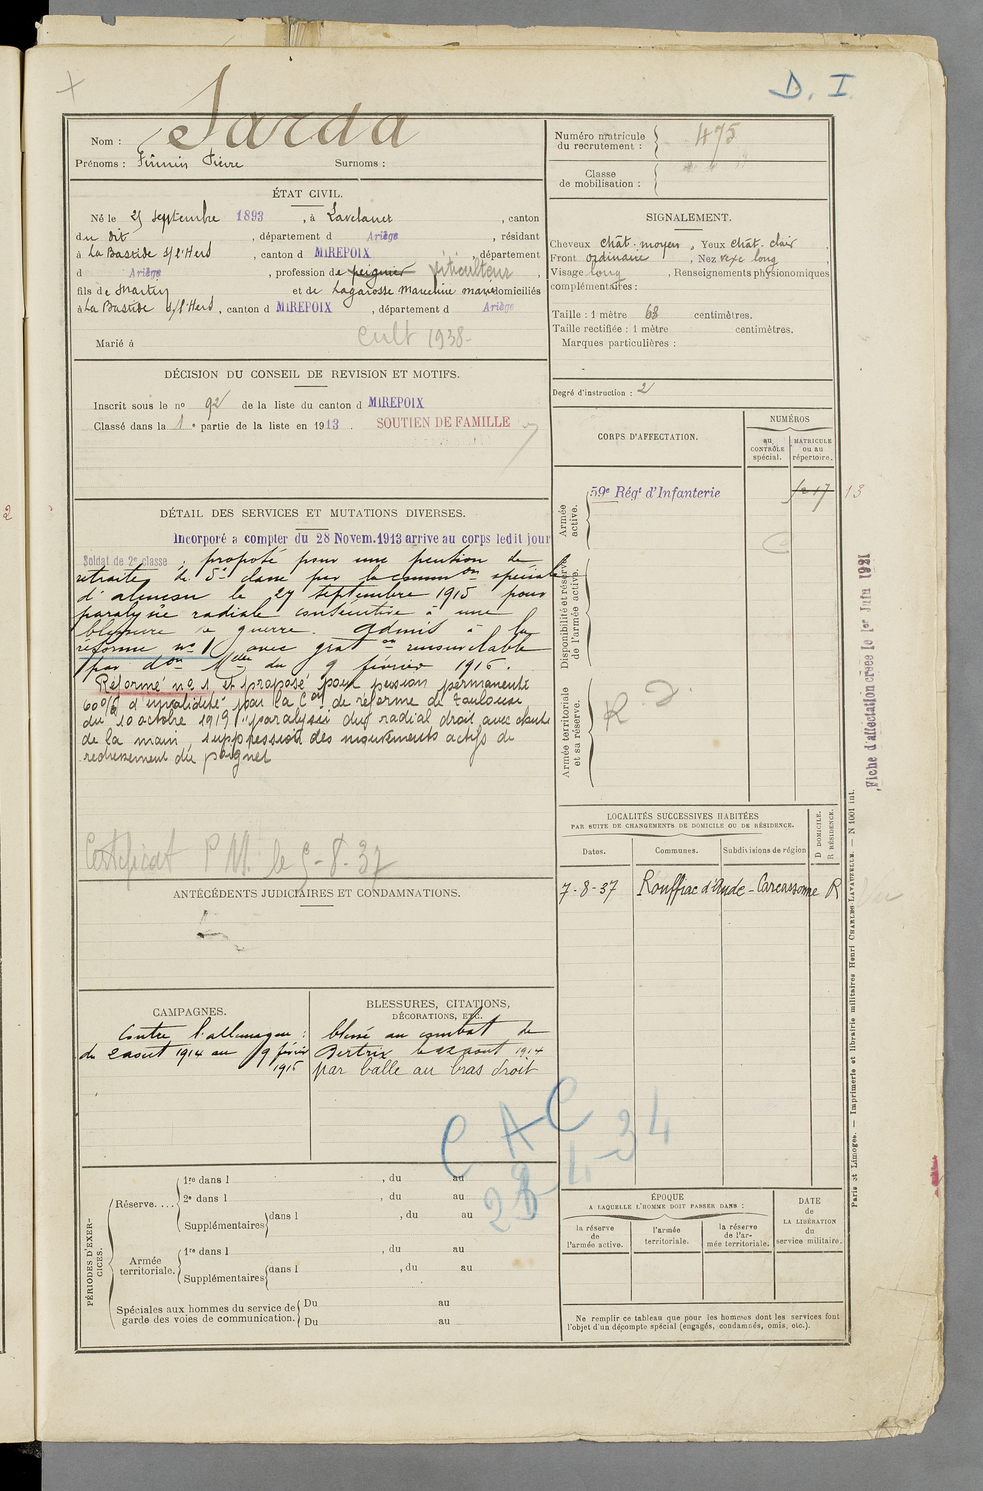 D. I.
Nom : Sarda
Prénoms : Firmin Pierre Surnoms :
Numéro matricule du recrutement : 475
Classe de mobilisation :
ÉTAT CIVIL.
Né le 25 septembre 1893, à Lavelanet, canton
du dit, département d Ariège, résidant
à La Bastide s/l'Hers, canton d MIREPOIX, département
d Ariège, profession de peignier viticulteur,
fils de Martin et de Lagarosse Marceline Marie domiciliés
à La Bastide s/l'Hers, canton d MIREPOIX, département d Ariège
Marié à
Cult 1938-
SIGNALEMENT.
Cheveux chât. moyen, Yeux chât. clair,
Front ordinaire, Nez vexe long,
Visage long, Renseignements physionomiques
complémentaires :
Taille : 1 mètre 68 centimètres.
Taille rectifiée : 1 mètre centimètres.
Marques particulières :
Degré d'instruction : 2
DÉCISION DU CONSEIL DE REVISION ET MOTIFS.
Inscrit sous le no 92 de la liste du canton d MIREPOIX
Classé dans la 1e partie de la liste en 1913. SOUTIEN DE FAMILLE
DÉTAIL DES SERVICES ET MUTATIONS DIVERSES.
Incorporé a compter du 28 Novem. 1913 arrive au corps ledit jour
Soldat de 2e classe, proposé pour une pention de
retraite de 5e classe par la common spéciale
d'alencon le 27 septembre 1915 pour
paralysie radiale consécutive à une
blessure de guerre. Admis à la
réforme no 1 avec graton renouvelable
par don Mlle du 9 février 1916.
Réformé no 1 et proposé pour pension permanente
60% d'invalidité par la Con de réforme de Toulouse
du 10 octobre 1919 "paralysie du radial droit avec chute
de la main, suppression des mouvements actifs de
redressement du poignet
Certificat P M. le 5-8-37
CORPS D'AFFECTATION.
NUMÉROS
au CONTRÔLE spécial.
MATRICULE ou au répertoire.
Armée active.
59e Régt d'Infanterie
13
Disponibilité et réserve de l'armée active.
Armée territoriale et sa réserve.
R. D.
Fiche d'affectation créée le 1er Juin 1921
LOCALITÉS SUCCESSIVES HABITÉES
PAR SUITE DE CHANGEMENTS DE DOMICILE OU DE RÉSIDENCE.
D DOMICILE.
R RÉSIDENCE.
Dates. Communes. Subdivisions de région
7-8-37 Rouffiac d'Aude - Carcassonne R
ANTÉCÉDENTS JUDICIAIRES ET CONDAMNATIONS.
CAMPAGNES.
Contre l'allemagne :
du 2 août 1914 au 9 février
1916
BLESSURES, CITATIONS,
DÉCORATIONS, ETC.
blessé au combat de
Bertrix août 1914
par balle au bras droit
C A C
PÉRIODES D'EXERCICES.
Réserve....
1re dans l , du au
2e dans l , du au
Supplémentaires dans l , du au
Armée territoriale.
1re dans l , du au
Supplémentaires dans l , du au
Spéciales aux hommes du service de
garde des voies de communication.
Du au
Du au
ÉPOQUE
A LAQUELLE L'HOMME DOIT PASSER DANS :
la réserve de l'armée active.
l'armée territoriale.
la réserve de l'armée territoriale.
DATE de LA LIBÉRATION du service militaire.
Ne remplir ce tableau que pour les hommes dont les services font
l'objet d'un décompte spécial (engagés, condamnés, omis, etc.).
Paris et Limoges. — Imprimerie et librairie militaires Henri CHARLES-LAVAUZELLE. — N 1001 int.